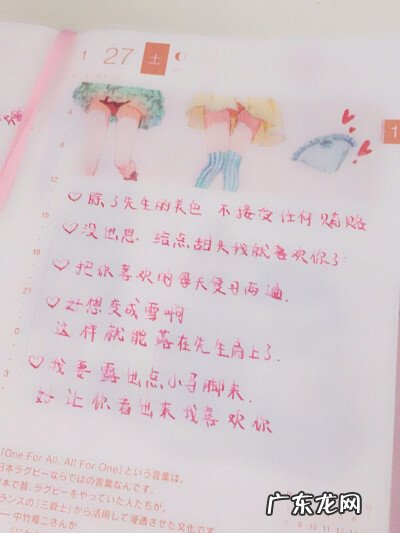 1 27 土
♡ 除了先生的美色 不接受任何贿赂
♡ 没出息 给点甜头我就喜欢你了
♡ 把你喜欢的每天复习两遍.
♡ 好想变成雪啊
这样就能落在先生肩上了.
♡ 我要露出点小马脚来.
好让你看出来我喜欢你
「One For All, All For One」という言葉は、
日本ラグビーならではの言葉なんです。
本で昔、ラグビーをやっていた人たちが、
ランスの『三銃士』から活用して浸透させた文化です
── 中竹竜二さんが
广东龙网